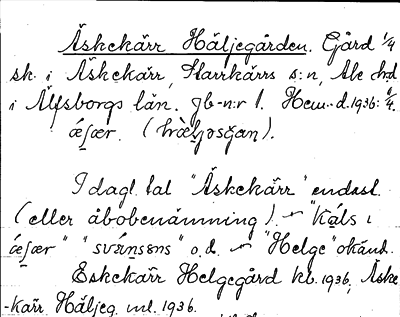 Äskekärr Häljegården. Gård 1/4
sk. i Äskekärr, Starrkärrs s:n, Ale hd
i Älfsborgs län. Jb-n:r 1. Hem.-d. 1936: 1/4.
I dagl. tal "Äskekärr" endast
(eller åbobenämning). "Kals i
o.d. "Helge" okänd.
Eskekärr Helgegård kb. 1936, Äske
-kärr Häljeg. ml. 1936.